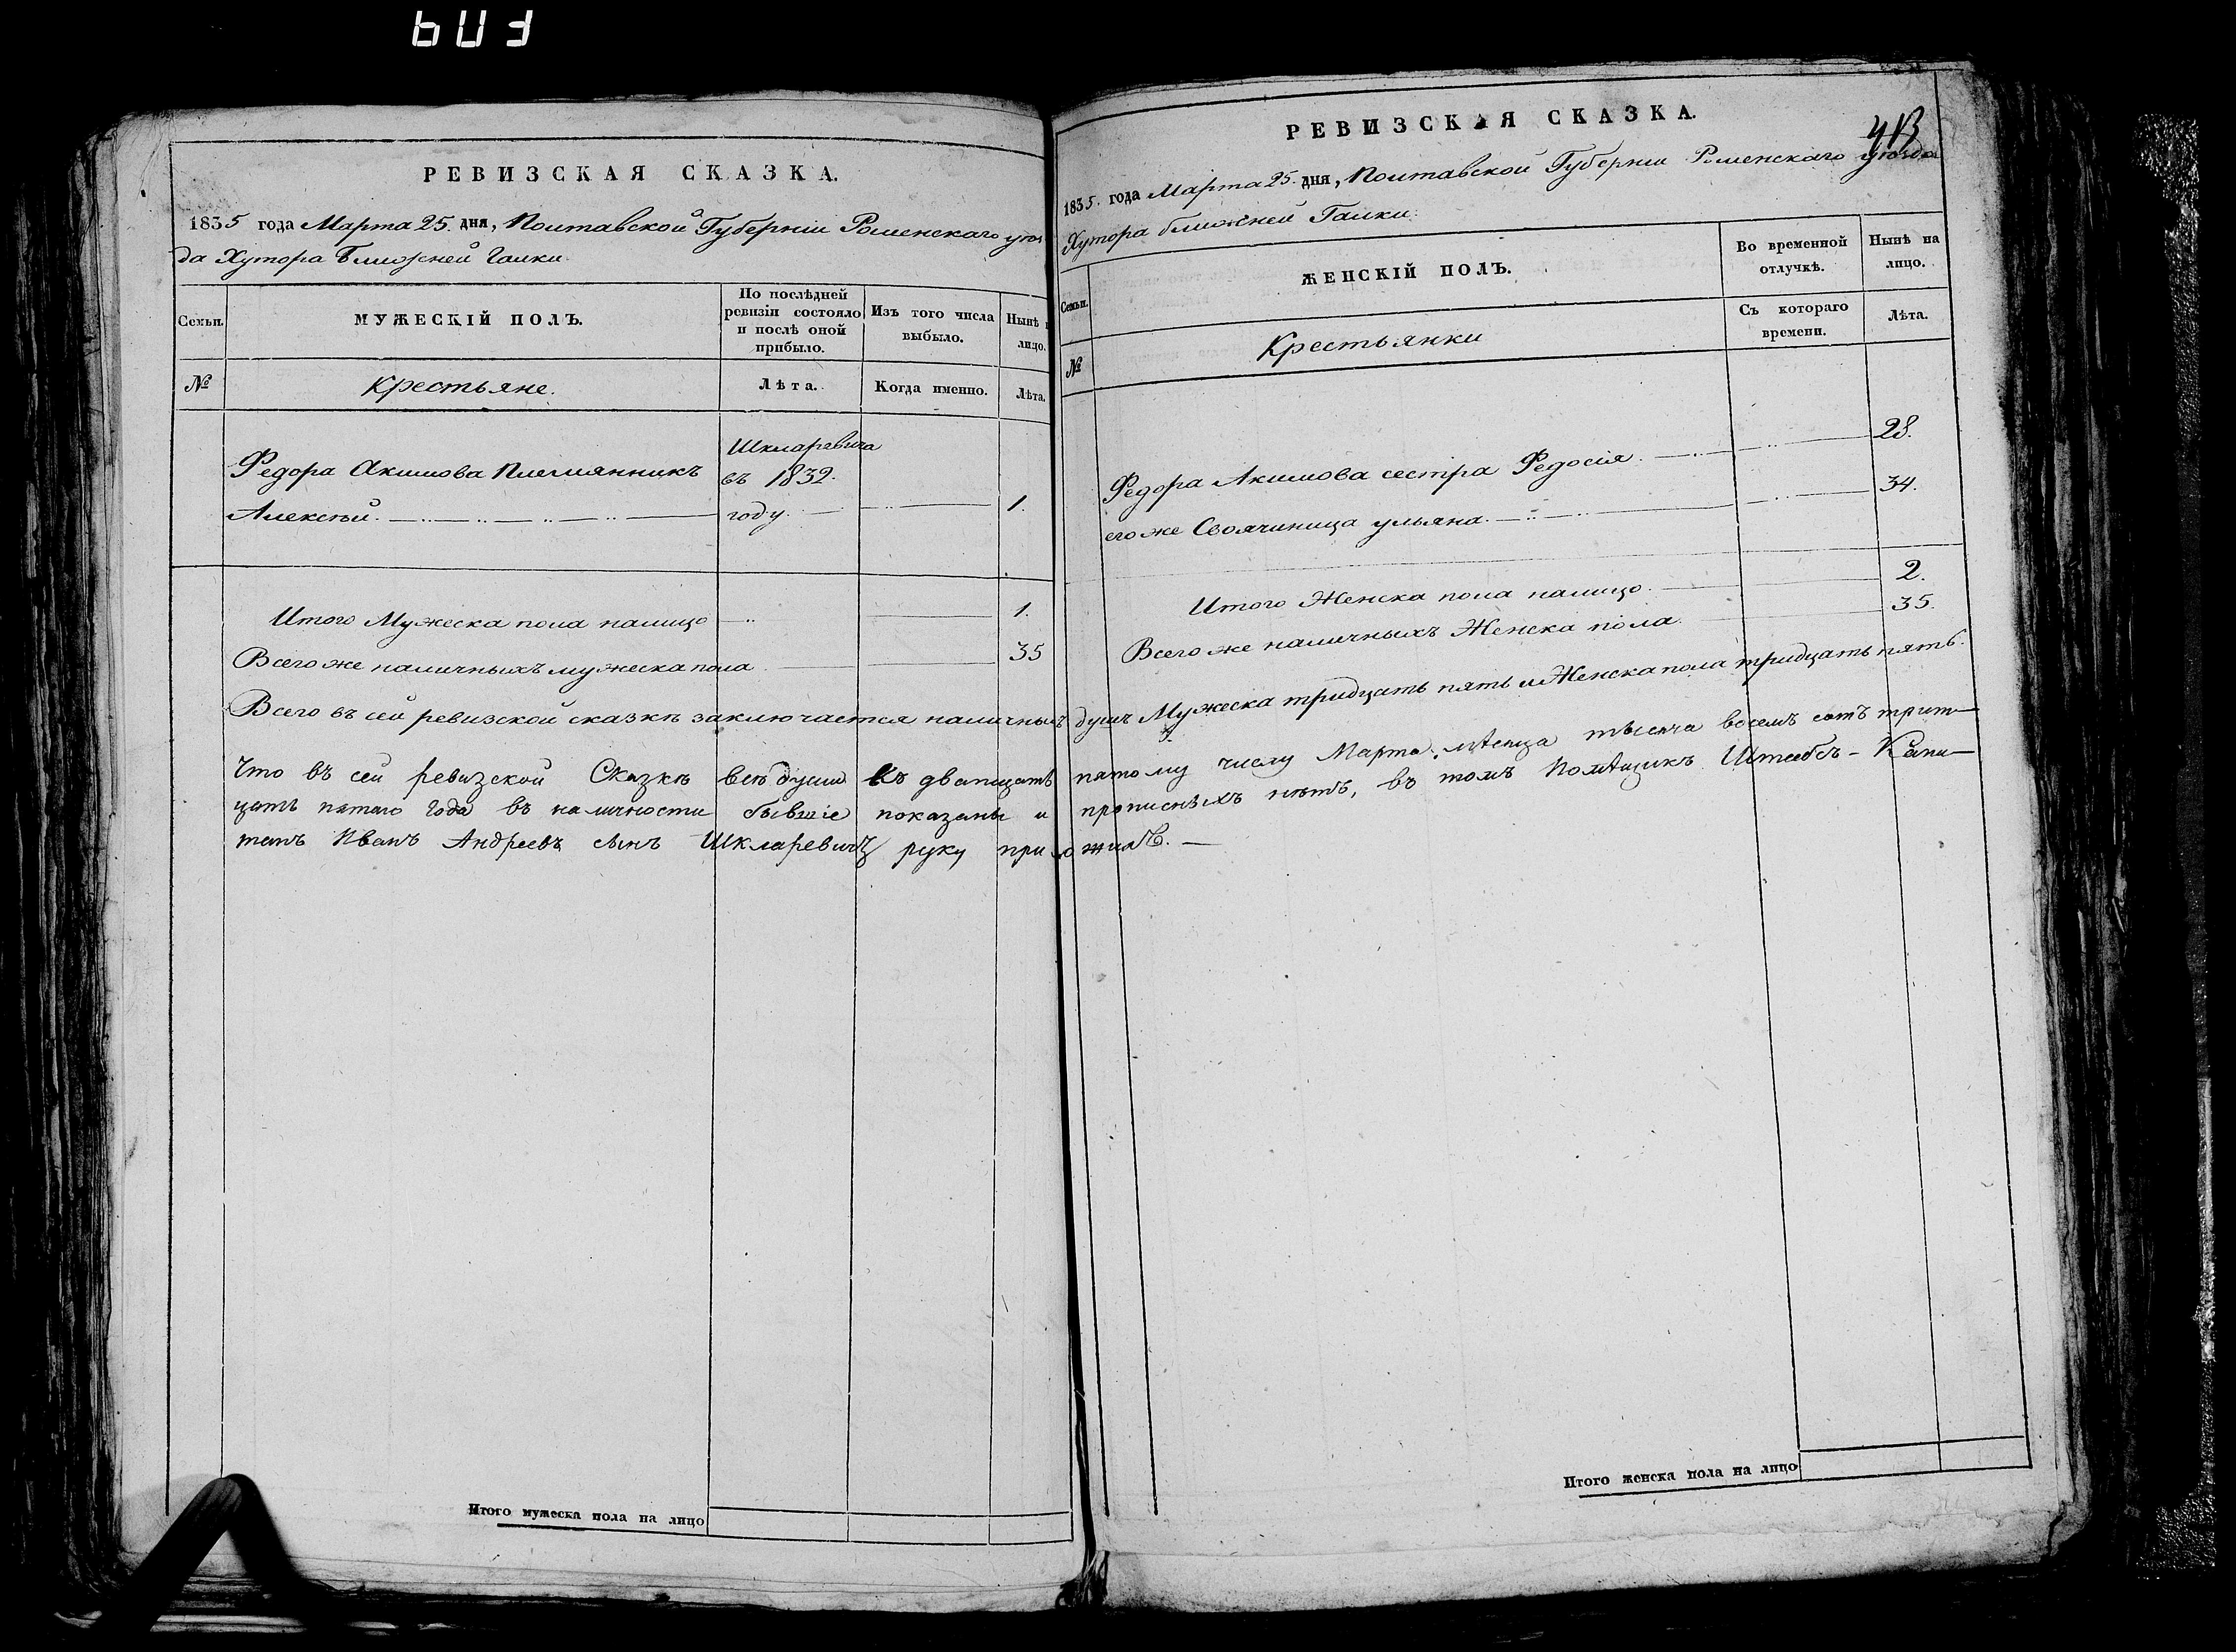 РЕВИЗСКАЯ СКАЗКА.
1835 года Марта 25. дня, Полтавской Губерніи Роменскаго уѣз
да Хутора Ближней Галки.
Семьи.
МУЖЕСКІЙ ПОЛЪ.
По послѣдней ревизіи состояло и послѣ оной прибыло.
Изъ того числа выбыло.
Нынѣ лицо.
№
Крестьяне.
Лѣта.
Когда именно.
Лѣта.
Шкларевича
Федора Акимова племянникъ
съ 1832.
Алексѣй.
году.
1.
Итого Мужеска пола налицо
1.
Всего же наличныхъ мужеска пола
35
Всего въ сей ревизской сказкѣ заключается наличныхъ душъ Мужеска тридцать пять и Женска пола тридцать пять.
Что въ сей ревизской Сказкѣ всѣ души къ дватцать пятому числу Марта мѣсяца тысяча восемъ сотъ трит-
цать пятаго года въ наличности бывшіе показаны и прописныхъ нѣтъ, въ томъ Помѣщикъ Штабсъ-Капи-
танъ Иванъ Андреевъ сынъ Шкларевичъ руку приложилъ.
Итого мужеска пола на лицо
РЕВИЗСКАЯ СКАЗКА.
413
1835. года Марта 25. дня, Полтавской Губерніи Роменскаго уѣзда
Хутора ближней Галки.
Семьи.
ЖЕНСКІЙ ПОЛЪ.
Во временной отлучкѣ.
Нынѣ на лицо.
№
Крестьянки
Съ котораго времени.
Лѣта.
Федора Акимова сестра Федосія.
28.
его же Своячиница ульяна.
34.
Итого Женска пола налицо.
2.
Всего же наличныхъ Женска пола.
35.
Итого женска пола на лицо